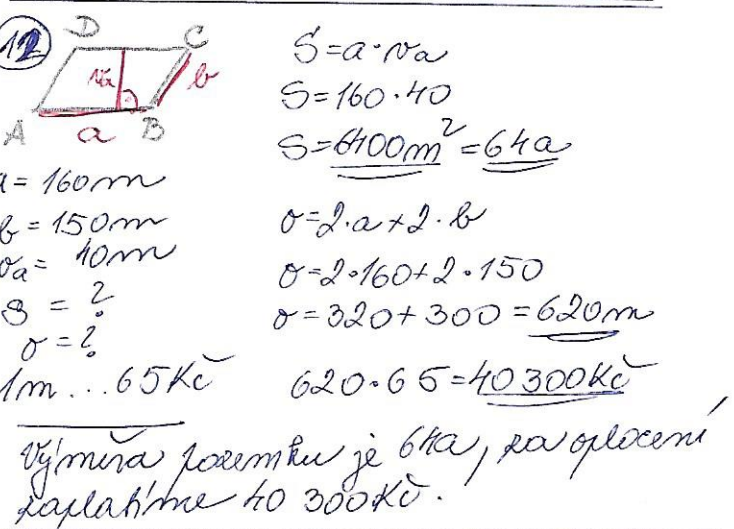 12
D C
va b
A a B
S=a·va
S=160·40
S=6400m²=64a
a=160m
b=150m
va=40m
S=?
o=?
1m...65Kč
o=2·a+2·b
o=2·160+2·150
o=320+300=620m
620·65=40300Kč
Výměra pozemku je 64a, za oplocení
zaplatíme 40 300Kč.